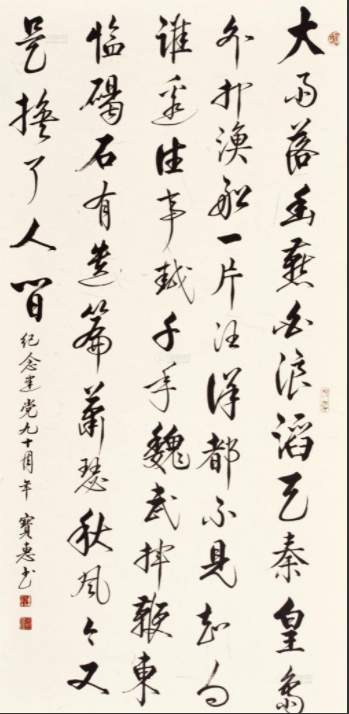 大雨落幽燕白浪滔天秦皇島
外打漁船一片汪洋都不見知向
誰邊往事越千年魏武揮鞭東
臨碣石有遺篇蕭瑟秋風今又
是換了人間
紀念建党九十周年 寶惠书